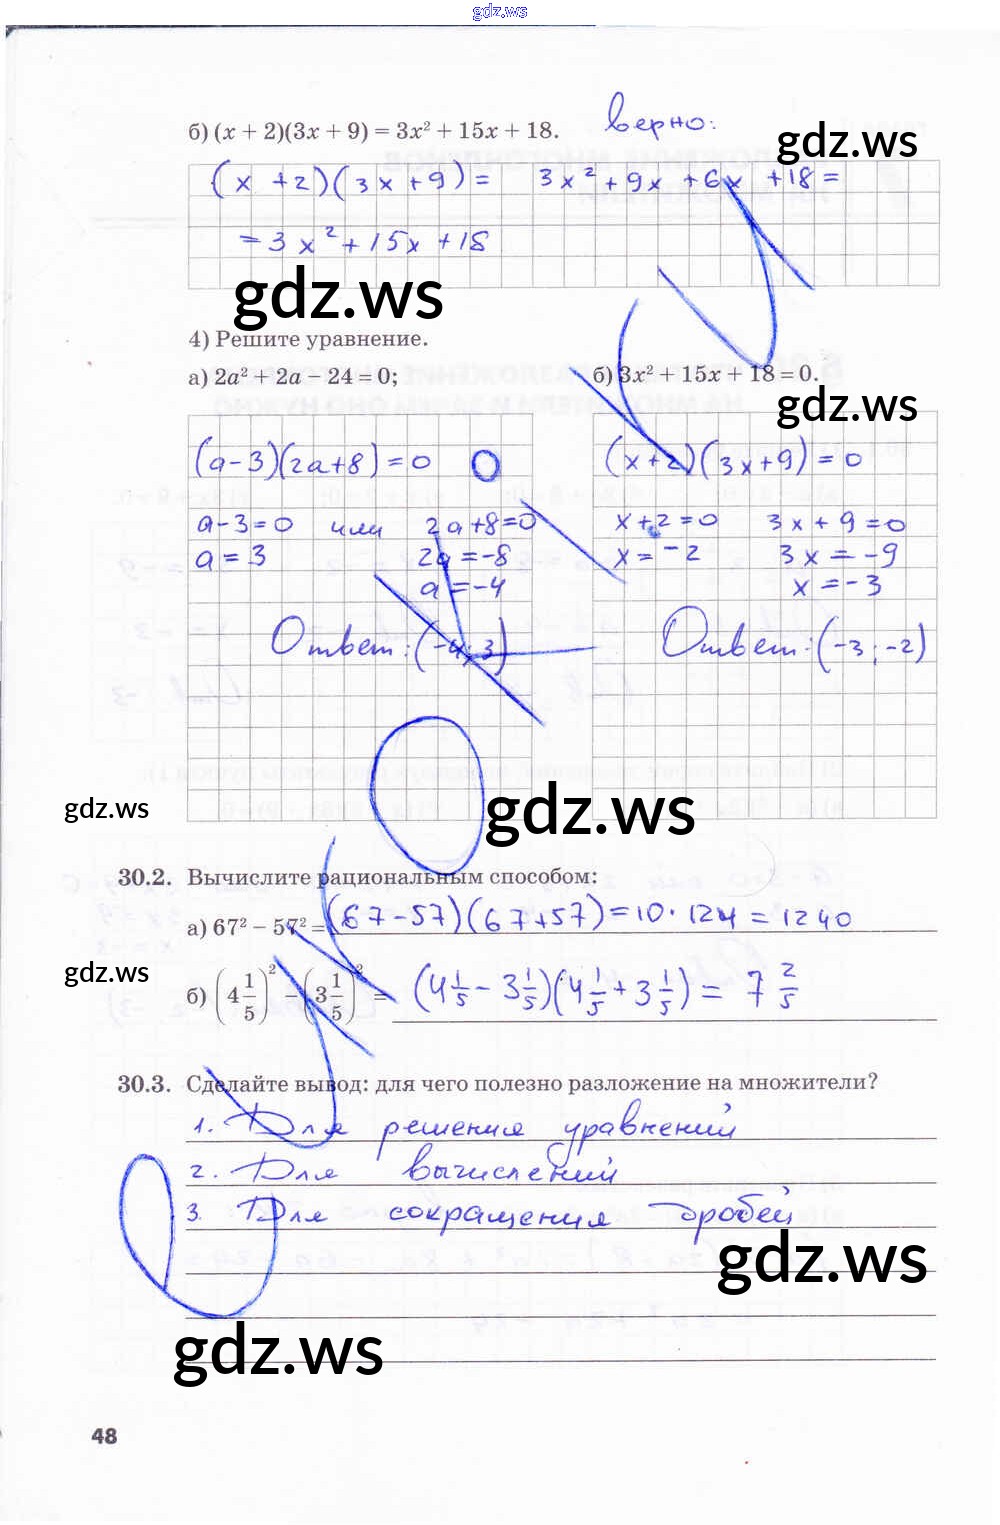 gdz.ws
б) (x + 2)(3x + 9) = 3x² + 15x + 18. верно:
gdz.ws
(x + 2)(3x + 9) = 3x² + 9x + 6x + 18 =
= 3x² + 15x + 18
gdz.ws
4) Решите уравнение.
а) 2a² + 2a – 24 = 0; б) 3x² + 15x + 18 – 0.
gdz.ws
(a - 3)(2a + 8) = 0 (x + 2)(3x + 9) = 0
a - 3 = 0 или 2a + 8 = 0 x + 2 = 0 3x + 9 = 0
a = 3 2a = -8 x = -2 3x = -9
a = -4 x = -3
Ответ: (-4; 3) Ответ: (-3; -2)
gdz.ws gdz.ws
30.2. Вычислите рациональным способом:
а) 67² – 57² = (67 - 57)(67 + 57) = 10 · 124 = 1240
gdz.ws
б) (4 1/5)² – (3 1/5)² = (4 1/5 - 3 1/5)(4 1/5 + 3 1/5) = 7 2/5
30.3. Сделайте вывод: для чего полезно разложение на множители?
1. Для решения уравнений
2. Для вычислений
3. Для сокращения дробей
gdz.ws
gdz.ws
48